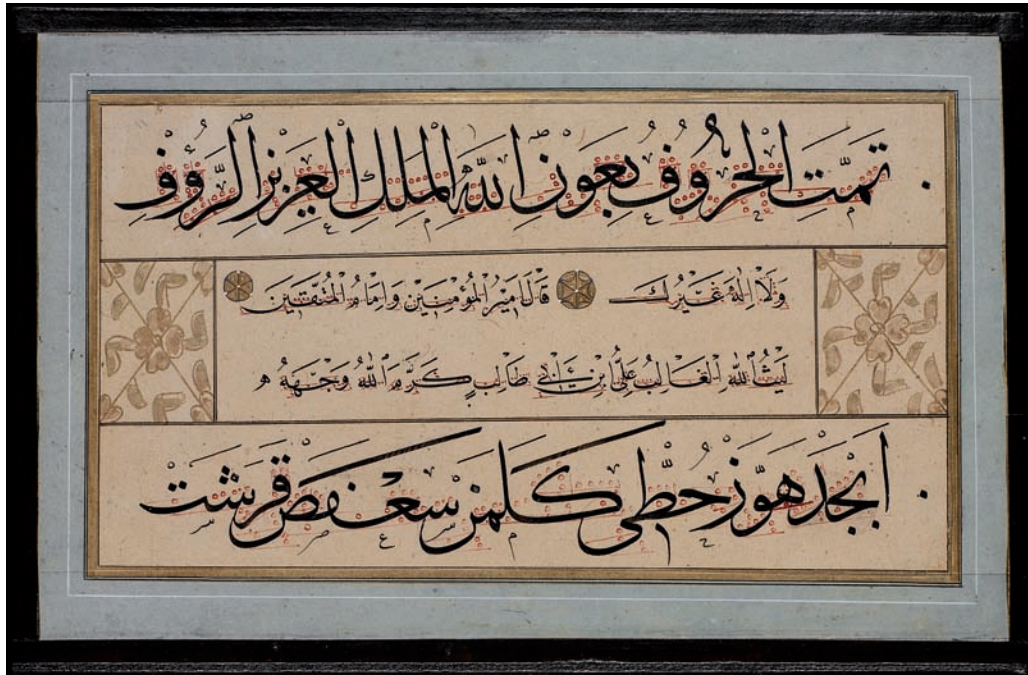 تَمَّتِ الْحُرُوفُ بِعَوْنِ اللّٰهِ الْمَلِكِ الْعَزِيزِ الرَّؤُفِ
وَلَا اِلٰهَ غَيْرُكَ قَالَ اَمِيرُ الْمُؤْمِنِينَ وَاِمَامُ الْمُتَّقِينَ
لَيْثُ اللّٰهِ الْغَالِبُ عَلِىُّ ابْنِ اَبِى طَالِبٍ كَرَّمَ اللّٰهُ وَجْهَهُ
اَبْجَدْ هَوَّزْ حُطِّى كَلَمَنْ سَعْفَصْ قَرَشَتْ